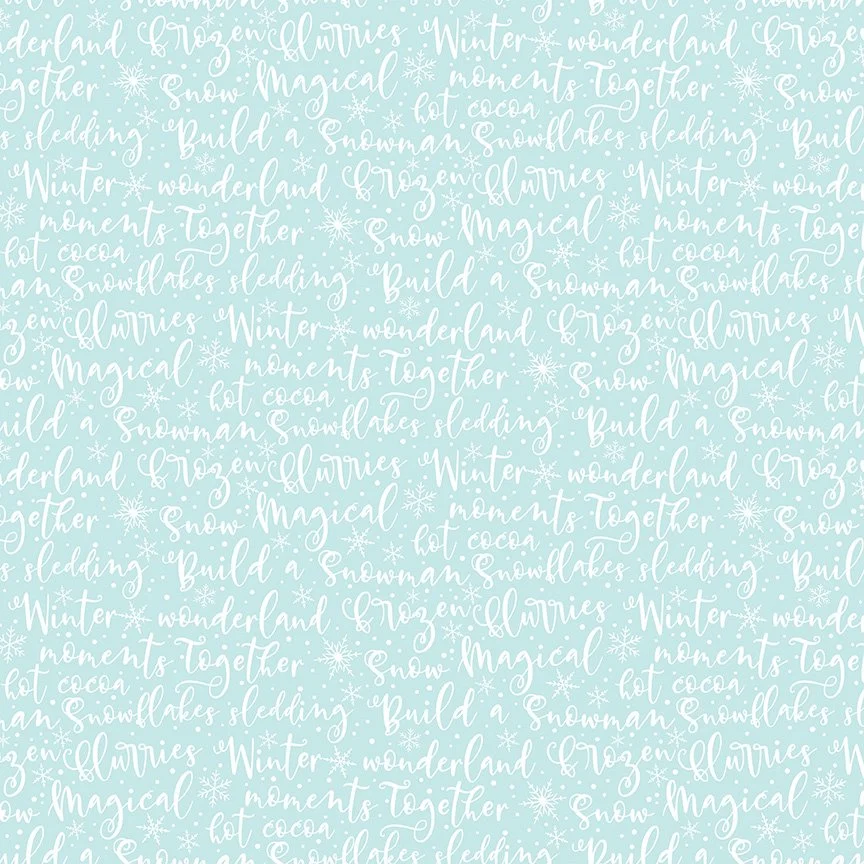 nderland Frozen flurries Winter wonderland Frozen
Together Snow Magical moments Together Snow
hot cocoa
s sledding Build a Snowman Snowflakes sledding Buil
Winter wonderland Frozen flurries Winter wonde
moments Together Snow Magical moments Toge
hot cocoa hot cocoa
man Snowflakes sledding Build a Snowman Snowflakes sle
zen flurries Winter wonderland Frozen flurries W
ow Magical moments Together Snow Magical
hot cocoa hot
uild a Snowman Snowflakes sledding Build a Snowman
nderland Frozen flurries Winter wonderland Frozen
ogether Snow Magical moments Together Snow
hot cocoa
s sledding Build a Snowman Snowflakes sledding Buil
Winter wonderland Frozen flurries Winter wonde
moments Together Snow Magical moments Toge
hot cocoa hot cocoa
man Snowflakes sledding Build a Snowman Snowflakes sle
zen flurries Winter wonderland Frozen flurries W
ow Magical moments Together Snow Magical
hot cocoa hot
uild a Snowman Snowflakes sledding Build a Snowman